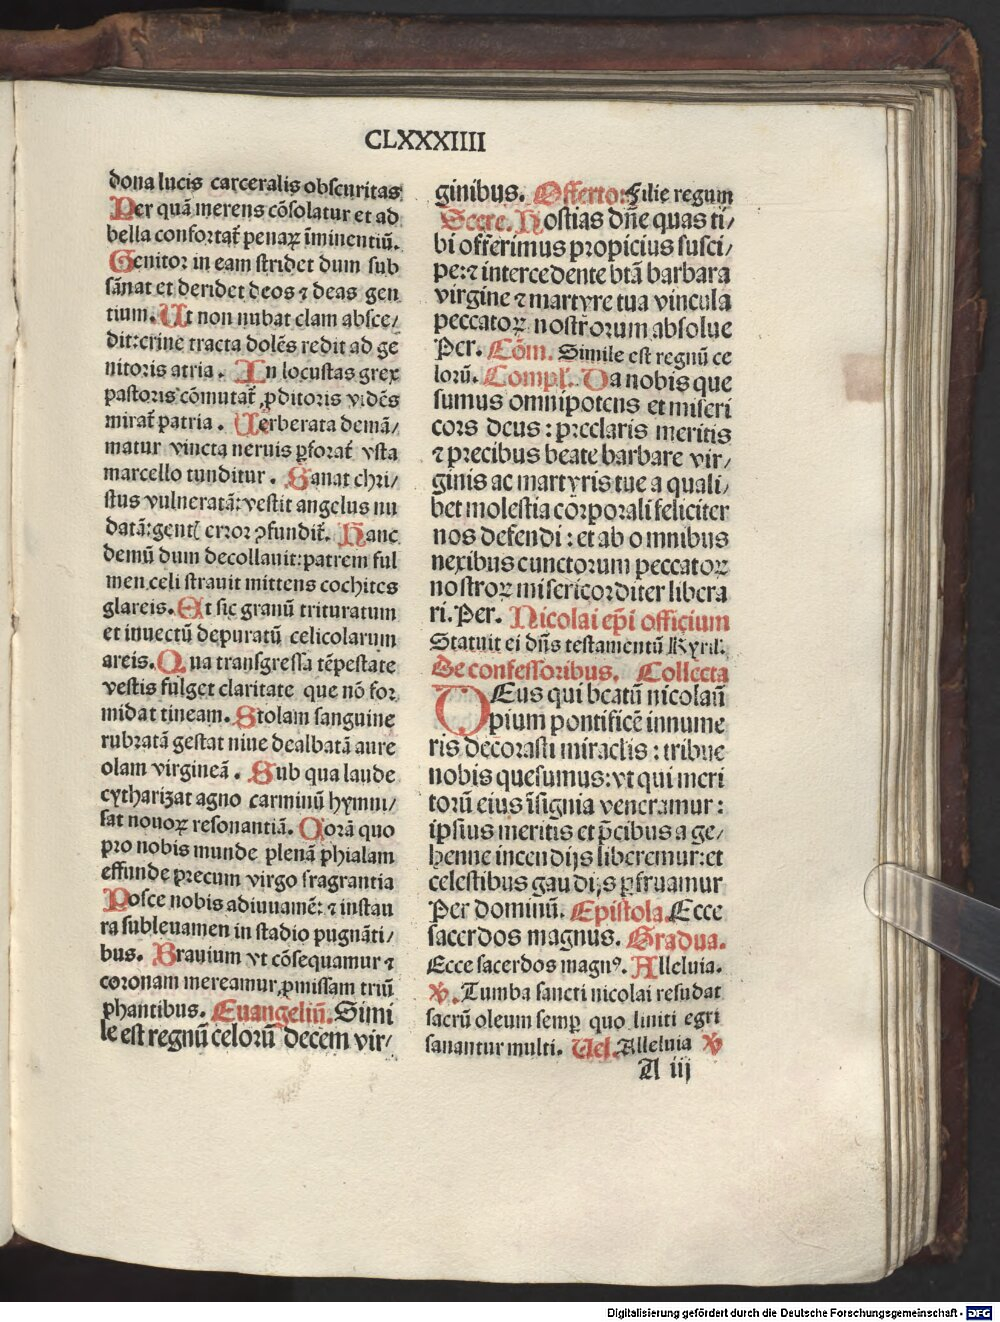 CLXXXIIII
dona lucis carceralis obscuritas
Per quã merens cõsolatur et ad
bella confortat̃ penaꝝ ĩminentiũ.
Genitor in eam stridet dum sub
sãnat et deridet deos ⁊ deas gen
tium. Ut non nubat clam absce/
dit: crine tracta dolẽs redit ad ge
nitoris atria. In locustas grex
pastoris cõmutat̃ ꝓditoris vidẽs
mirat̃ patria. Uerberata demã/
matur vincta neruis ꝑforat̃ vsta
marcello tunditur. Sanat chri/
stus vulneratã: vestit angelus nu
datã: gent̃ error ꝯfundit̃. Hanc
demũ dum decollauit: patrem ful
men celi strauit mittens cochites
glareis. Et sic granũ trituratum
et inuectũ depuratũ celicolarum
areis. Qua transgressa tẽpestate
vestis fulget claritate que nõ for
midat tineam. Stolam sanguine
rubratã gestat niue dealbatã aure
olam virgineã. Sub qua laude
cytharizat agno carminũ hymni/
sat nouoꝝ resonantiã. Corã quo
pro nobis munde plenã phialam
effunde precum virgo fragrantia
Posce nobis adiuuamẽ: ⁊ instau
ra subleuamen in stadio pugnãti/
bus. Brauium vt cõsequamur ⁊
coronam mereamur ꝓmissam triũ
phantibus. Euangeliũ. Simi
le est regnũ celorũ decem vir/
ginibus. Offerto: Filie regum
Secre. Hostias dñe quas ti/
bi offerimus propicius susci/
pe: ⁊ intercedente btã barbara
virgine ⁊ martyre tua vincula
peccatoꝝ nostrorum absolue
Per. Cõm. Simile est regnũ ce
lorũ. Compl̃. Da nobis que
sumus omnipotens et miseri
cors deus: preclaris meritis
⁊ precibus beate barbare vir/
ginis ac martyris tue a quali/
bet molestia corporali feliciter
nos defendi: et ab omnibus
nexibus cunctorum peccatoꝝ
nostroꝝ misericorditer libera
ri. Per. Nicolai ep̃i officium
Statuit ei dñs testamentũ Kyril:
De confessoribus. Collecta
DEus qui beatũ nicolaũ
pium pontificẽ innume
ris decorasti miraclis: tribue
nobis quesumus: vt qui meri
torũ eius ĩsignia veneramur:
ipsius meritis et p̃cibus a ge/
henne incendijs liberemur: et
celestibus gaudijs ꝑfruamur
Per dominũ. Epistola. Ecce
sacerdos magnus. Gradua.
Ecce sacerdos magnꝰ. Alleluia.
℣. Tumba sancti nicolai resudat
sacrũ oleum semꝑ quo liniti egri
sanantur multi. Uel. Alleluia ℣
A iij
Digitalisierung gefördert durch die Deutsche Forschungsgemeinschaft - DFG